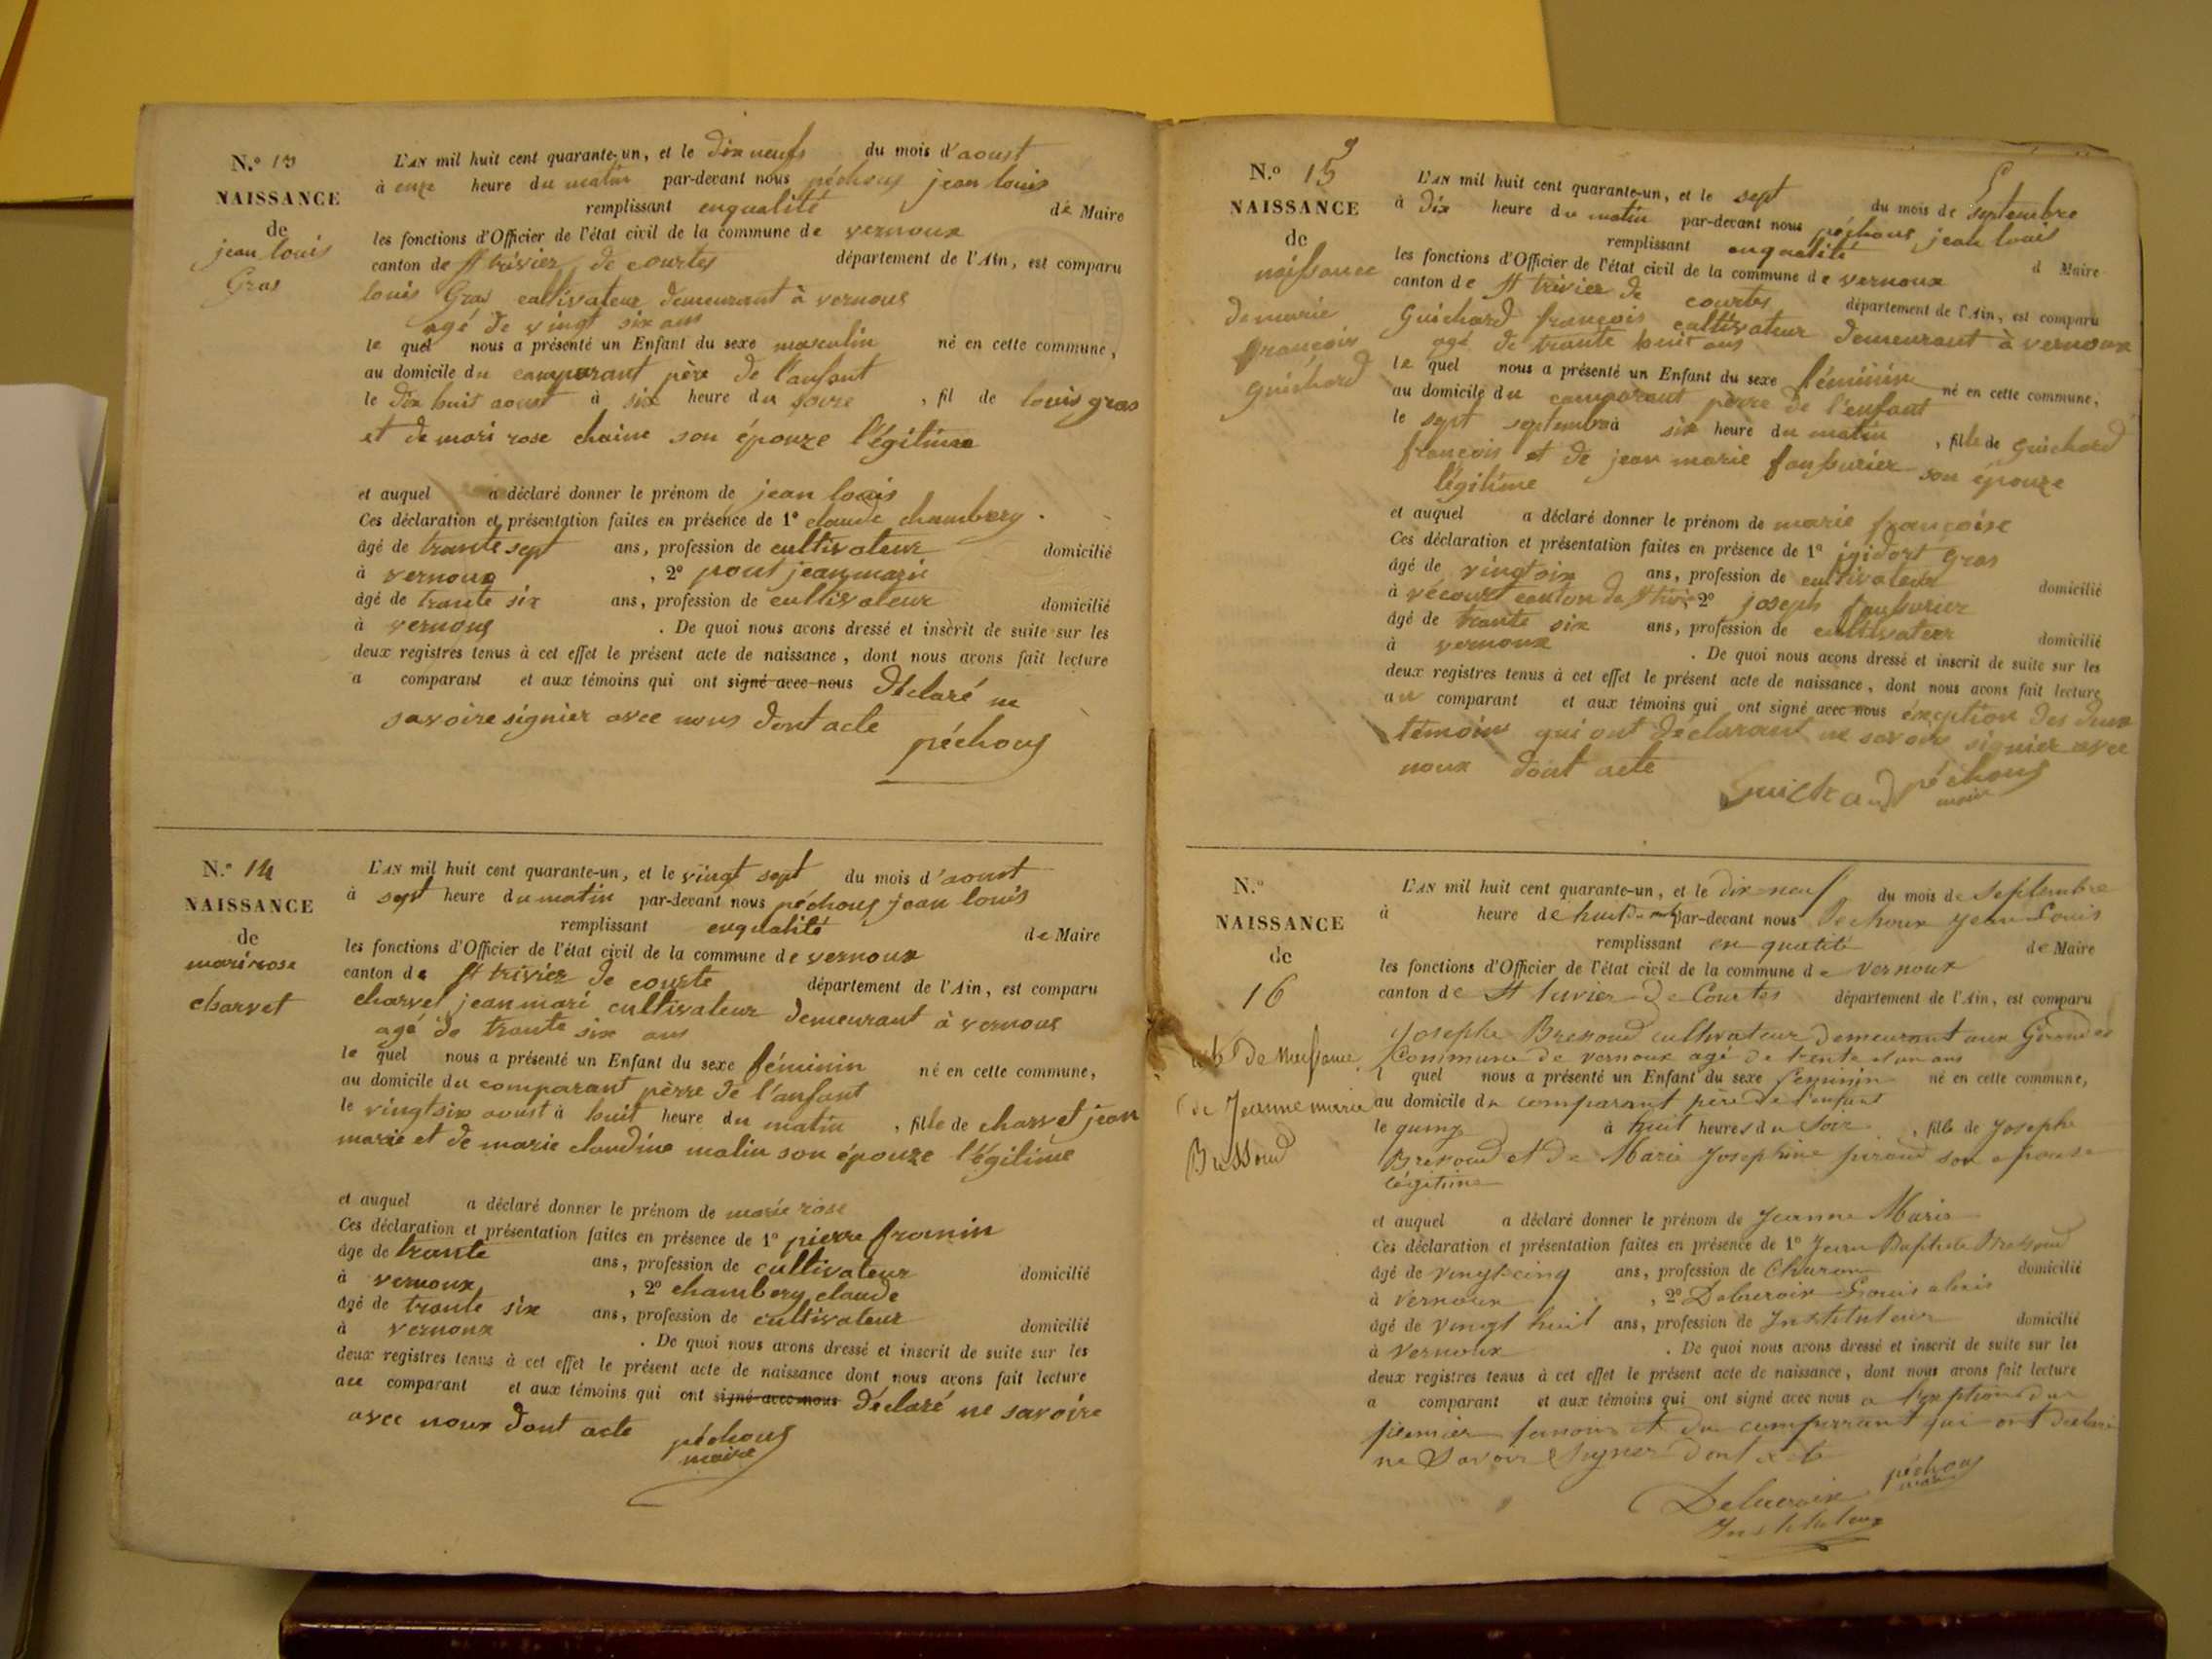 N.° 13
NAISSANCE
de
jean louis
Gras
L'AN mil huit cent quarante-un, et le dix neufs du mois d'aoust
à onze heure du matin par-devant nous péchoux jean louis
remplissant enqualité de Maire
les fonctions d'Officier de l'état civil de la commune de vernoux
canton de St trivier de courtes département de l'Ain, est comparu
louis Gras cultivateur demeurant à vernoux
agé de vingt six ans
le quel nous a présenté un Enfant du sexe masculin né en cette commune,
au domicile du comparant père de l'anfant
le dix huit aoust à six heure du soire , fil de louis gras
et de mari rose chaine son épouze l'égitime
et auquel a déclaré donner le prénom de jean louis
Ces déclaration et présentation faites en présence de 1° claude chambery .
âgé de trante sept ans, profession de cultivateur domicilié
à vernoux , 2° pont jean marie
âgé de trante six ans, profession de cultivateur domicilié
à vernoux . De quoi nous avons dressé et inscrit de suite sur les
deux registres tenus à cet effet le présent acte de naissance, dont nous avons fait lecture
a comparant et aux témoins qui ont signé avec nous déclaré ne
savoire signier avec nous dont acte
péchoux
N.° 14
NAISSANCE
de
mari rose
charvet
L'AN mil huit cent quarante-un, et le vingt sept du mois d'aoust
à sept heure du matin par-devant nous péchoux jean louis
remplissant enqualité de Maire
les fonctions d'Officier de l'état civil de la commune de vernoux
canton de St trivier de courte département de l'Ain, est comparu
charvet jean mari cultivateur demeurant à vernoux
agé de trante six ans
le quel nous a présenté un Enfant du sexe féminin né en cette commune,
au domicile du comparant pèrre de l'anfant
le vingt six aoust à huit heure du matin , fille de charvet jean
marie et de marie claudine matin son épouze l'égitime
et auquel a déclaré donner le prénom de marie rose
Ces déclaration et présentation faites en présence de 1° pierre
âgé de trante ans, profession de cultivateur domicilié
à vernoux , 2° chambery claude
âgé de trante six ans, profession de cultivateur domicilié
à vernoux . De quoi nous avons dressé et inscrit de suite sur les
deux registres tenus à cet effet le présent acte de naissance dont nous avons fait lecture
au comparant et aux témoins qui ont signé avec nous déclaré ne savoire
avec noux dont acte péchoux
maire
N.° 15
NAISSANCE
de
naissance
de marie
françois
guichard
L'AN mil huit cent quarante-un, et le sept du mois de septembre
à dix heure du matin par-devant nous péchoux jean louis
remplissant enqualité d Maire
les fonctions d'Officier de l'état civil de la commune de vernoux
canton de St trivier de courtes département de l'Ain, est comparu
Guichard françois cultivateur demeurant à vernoux
agé de trante huit ans
le quel nous a présenté un Enfant du sexe féminin né en cette commune,
au domicile du comparant pèrre de l'enfant
le sept septembre à six heure du matin , fille de guichard
françois et de jean marie son épouze
l'égitime
et auquel a déclaré donner le prénom de marie françoise
Ces déclaration et présentation faites en présence de 1° Gras
âgé de vingt six ans, profession de cultivateur domicilié
à canton de 2° joseph
âgé de trante six ans, profession de cultivateur domicilié
à vernoux . De quoi nous avons dressé et inscrit de suite sur les
deux registres tenus à cet effet le présent acte de naissance, dont nous avons fait lecture
au comparant et aux témoins qui ont signé avec nous éxeption des deux
témoins qui ont déclarant ne savoir signier avec
noux dont acte
Guichard péchoux
maire
N.°
NAISSANCE
de
16
acte de Naissance
de Jeanne marie
Bressoud
L'AN mil huit cent quarante-un, et le dix-neuf du mois de Septembre
à heure de huit du par-devant nous Pechoux Jean Louis
remplissant en qualité de Maire
les fonctions d'Officier de l'état civil de la commune de Vernoux
canton de St Trivier de Courtes département de l'Ain, est comparu
Josephe Bressoud cultivateur demeurant aux
Commune de vernoux agé de trente et un ans
l quel nous a présenté un Enfant du sexe feminin né en cette commune,
au domicile du comparant père de l'enfant
le quinze à huit heures du Soir , fille de Josephe
Bressoud et de Marie Josephine son epouse
légitime
et auquel a déclaré donner le prénom de Jeanne Marie
Ces déclaration et présentation faites en présence de 1° Jean Baptiste Bressoud
âgé de vingt-cinq ans, profession de Charon domicilié
à Vernoux , 2° Delacroix
âgé de vingt huit ans, profession de Instituteur domicilié
à Vernoux . De quoi nous avons dressé et inscrit de suite sur les
deux registres tenus à cet effet le présent acte de naissance, dont nous avons fait lecture
a comparant et aux témoins qui ont signé avec nous a l'exeption du
premier temoin et du comparrant qui ont declaré
ne Savoir Signer dont acte
péchoux
maire
Delacroix
Instituteur